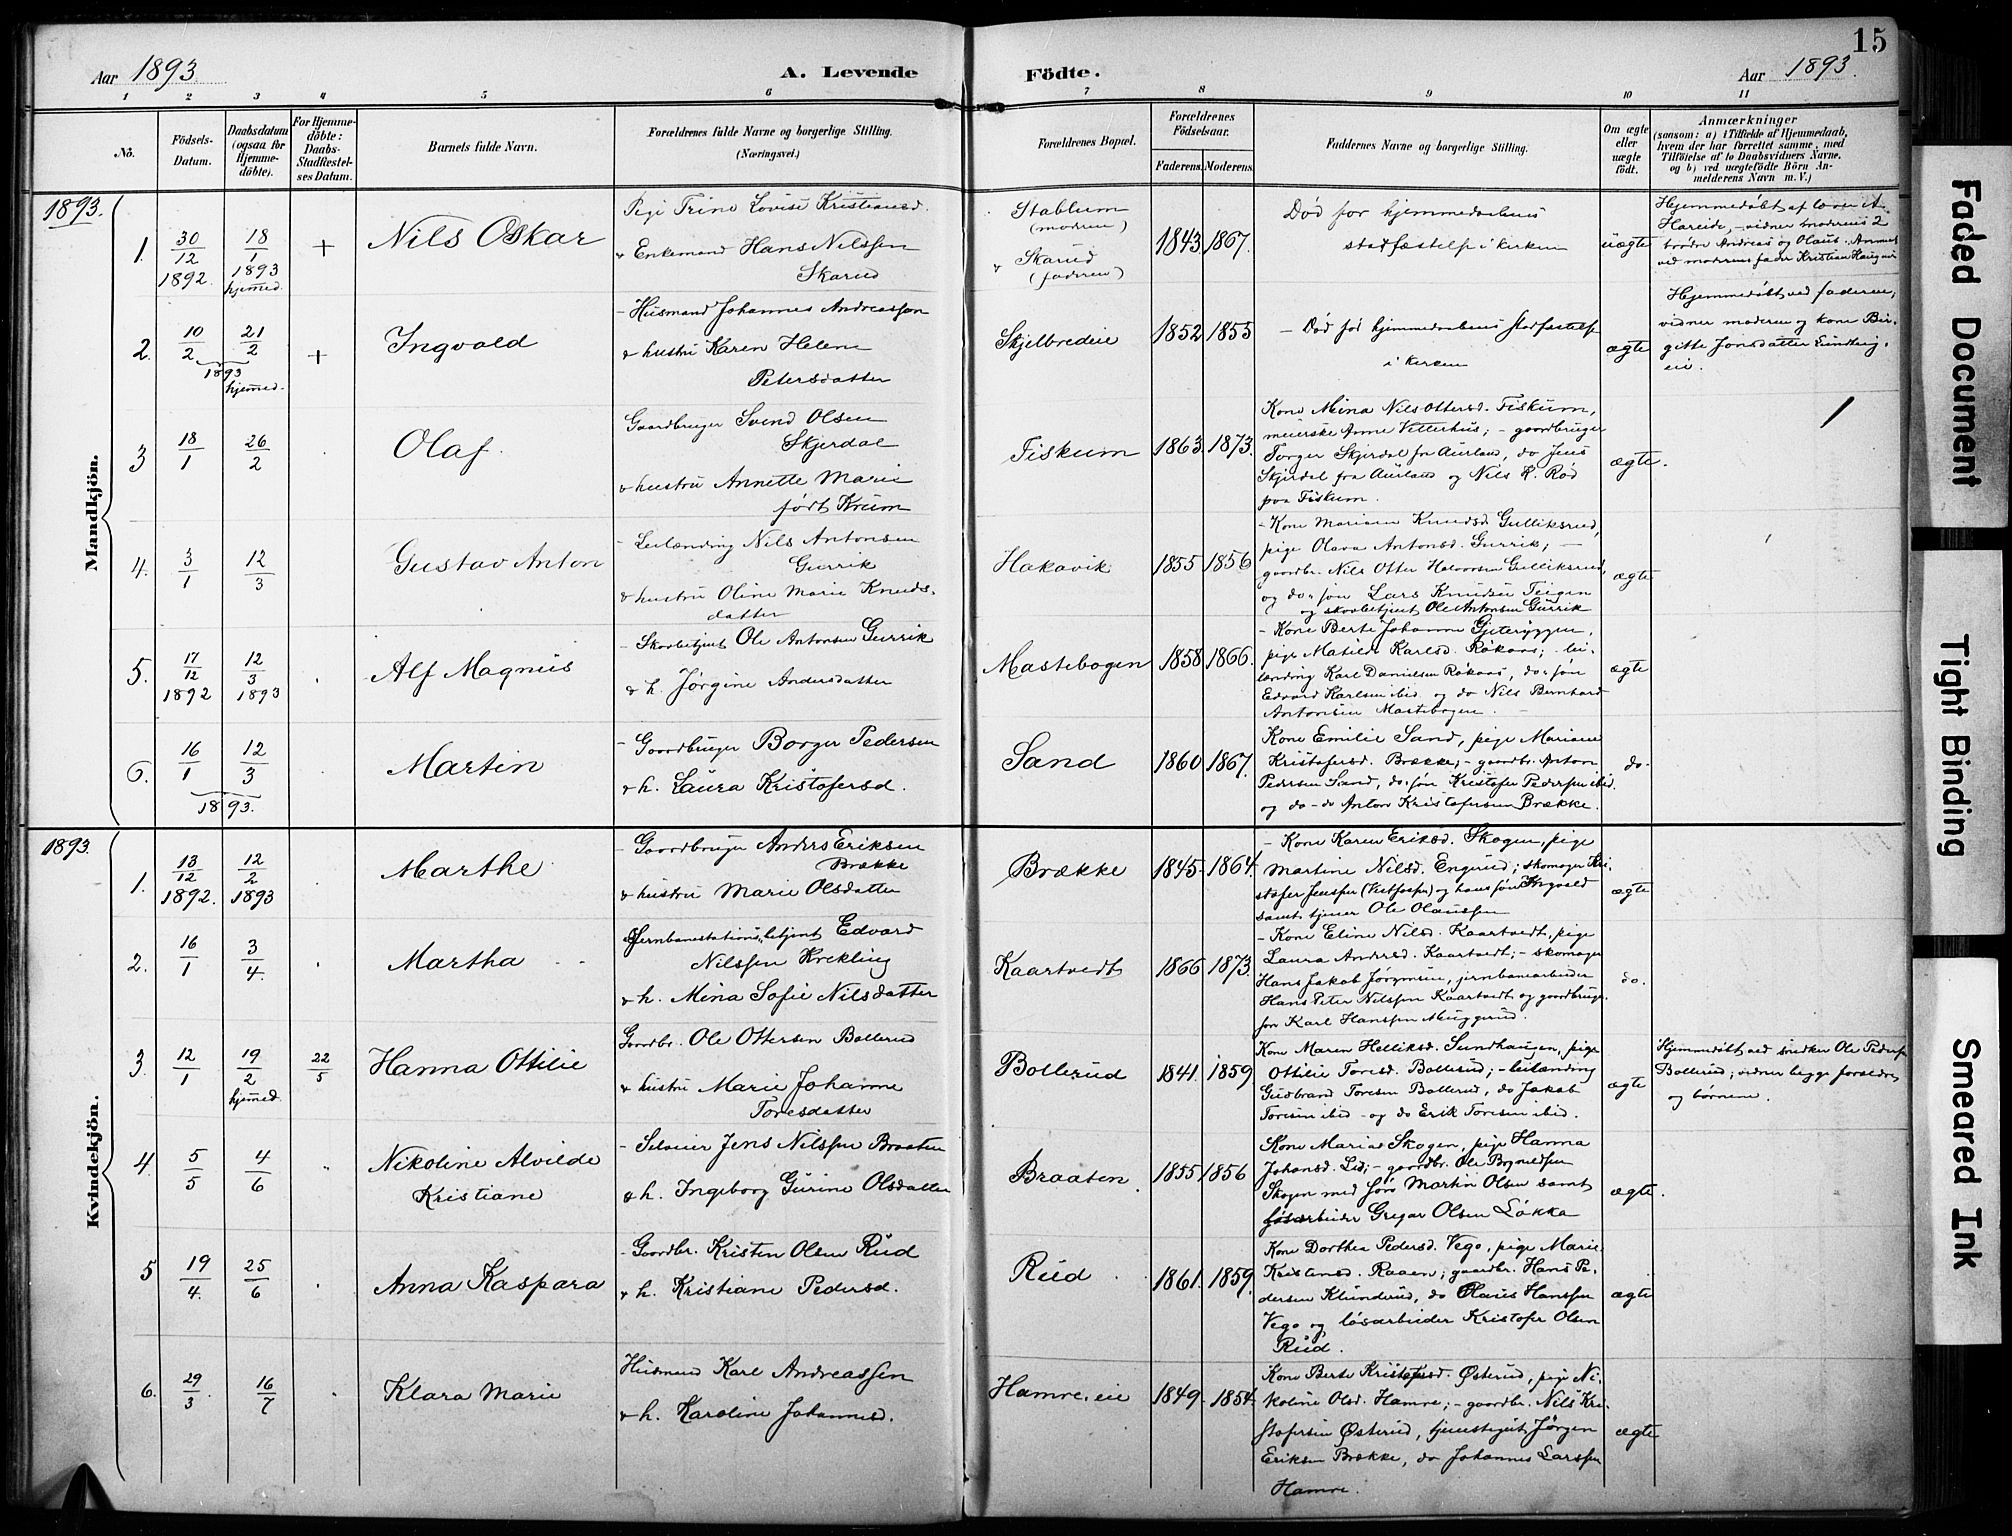 15
Aar 1893.
A. Levende Födte.
Aar 1893.
1 2 3 4 5 6 7 8 9 10 11
No.
Födsels-Datum.
Daabsdatum (ogsaa for Hjemme-döbte).
For Hjemme-döbte: Daabs-Stadfæstel-ses Datum.
Barnets fulde Navn.
Forældrenes fulde Navne og borgerlige Stilling.
(Næringsvei.)
Forældrenes Bopæl.
Forældrenes Födselsaar.
Faderens. Moderens.
Faddernes Navne og borgerlige Stilling.
Om ægte eller uægte födt.
Anmærkninger
(saasom: a) i Tilfælde af Hjemmedaab,
hvem der har forrettet samme, med
Tilföielse af to Daabsvidners Navne,
og b) ved uægtefödte Börn An-
melderens Navn m. V.)
Mandkjön.
1893.
1. 30/12 1892. 18/1 1893 hjemmed. + Nils Oskar
Pige Trine Lovise Kristiansd.
& Enkemand Hans Nilssen
Skarud
Stablum
(moderen)
& Skarud
(faderen)
1843 1867.
Död for hjemmedaabens
stadfæstelse i kirken
uægte
Hjemmedöbt af lærer A.
Hareide, - vidner moderens 2
brødre Andreas og Olaus. Anmeldt
ved moderens fader Kristian Haugen
2. 10/2 21/2 1893 hjemmed. + Ingvald
- Husmand Johannes Andreassen
& hustru Karen Helene
Petersdatter
Skjelbredeie 1852 1855
- Död før hjemmedaabens Stadfæstelse
i kirken
ægte
Hjemmedöbt ved faderen,
vidner moderen og kone Bir-
gitte Jonsdatter
eie.
3 18/1 26/2 Olaf.
Gaardbruger Svend Olsen
Skjerdal
& hustru Annette Marie
født Krum
Fiskum 1863. 1873.
Kone Mina Nils Ottersd. Fiskum,
meierske Anne Vetterhus; - gaardbruger
Torger Skjerdal fra Aurland, do Jens
Skjerdal fra Aurland og Nils K. Rød
paa Fiskum.
ægte.
4. 3/1 12/3 Gustav Anton
- Leilænding Nils Antonsen
Gurrik
& hustru Oline Marie Knuds-
datter
Hakavik 1855 1856
- Kone Mariam Knudsd Gulliksrud,
pige Olava Antonsd. Gurrik; -
gaardbr. Nils Otter Halvorsen Gulliksrud,
og do. søn Lars Knudsen Teigen
og skovbetjent Ole Antonsen Gurrik
ægte
5. 17/12 1892 12/3 1893 Alf Magnus
- Skovbetjent Ole Antonsen Gurrik
& h. Jørgine Andersdatter
Mastebogen 1858 1866.
- Kone Berte Johanne Gjeteryggen,
pige Matilde Karlsd. Røkaas; lei-
lænding Karl Danielsen Røkaas, do. søn
Edvard Karlsen ibid. og do Nils Bernhard
Antonsen Mastebogen.
ægte
6. 16/1 12/3 1893. Martin
- Gaardbruger Borger Pedersen
& h. Laura Kristofersd.
Sand 1860 1867.
Kone Emilie Sand, pige Mariane
Kristofersd. Brække; - gaardbr. Anton
Pedersen Sand, do. søn Kristofer Pedersen ibid.
og do - do Anton Kristofersen Brække.
do.
Kvindekjön.
1893.
1. 13/12 1892. 12/2 1893 Marthe
- Gaardbruger Anders Eriksen
Brække
& hustru Marie Olsdatter
Brække 1845- 1864.
- Kone Karen Eriksd. Skogen, pige
Martine Nilsd. Engrud; skomager Kri-
stofer Jensen (Vestfossen) og hans søn Ingvald
samt tjener Ole Olaussen
ægte
2. 16/1 3/4 Martha
Jernbanestationsbetjent Edvard
Nilssen Krekling
& h. Mina Sofie Nilsdatter
Kaartvedt 1866 1873.
- Kone Eline Nilsd. Kaartvedt, pige
Laura Andrsd. Kaartvedt; - skomager
Hans Jakob Jörgensen, jernbanearbeider
Hans Peter Nilssen Kaartvedt og gaardbruger
søn Karl Hanssen Muggerud.
do.
3. 12/1 19/2 hjemmed. 22/5 Hanna Ottilie
Gaardbr. Ole Ottersen Bollerud
& hustru Marie Johanne
Toresdatter
Bollerud 1841. 1859
Kone Maren Helliksd. Sundhaugen, pige
Ottilie Toresd. Bollerud; - leilænding
Gudbrand Toresen Bollerud, do Jakob
Toresen ibid - og do Erik Toresen ibid.
ægte
Hjemmedöbt ved snedker Ole Pedersen
Bollerud; vidner begge forældre
og børnene.
4. 5/5 4/6 Nikoline Alvilde
Kristiane
- Selveier Jens Nilssen Braaten
& h. Ingeborg Gurine Olsdatter
Braaten 1855 1856
Kone Marie Skogen, pige Hanna
Johansd. Lid; - gaardbr. Ole Bryneldsen
Skogen med søn Martin Olsen samt
løsarbeider Gregar Olsen Løkka
ægte.
5 19/4. 25/6 Anna Kaspara
- Gaardbr. Kristen Olsen Rud
& h. Kristiane Pedersd.
Rud 1861. 1859.
Kone Dorthea Pedersd. Vego, pige Marie
Kristensd. Raaen; gaardbr. Hans Pe-
dersen Klunderud, do Olaus Hanssen
Vego og løsarbeider Kristofer Olsen
Rud.
ægte
6. 29/3. 16/7 Klara Marie
Husmand Karl Andreassen
& h. Karoline Johannesd.
Hamre, eie 1849 - 1854.
Kone Berte Kristofersd. Østerud, pige Ni-
koline Olsd. Hamre; - gaardbr. Nils Kri-
stofersen Østerud, tjenestegut Jørgen
Eriksen Brække, do Johannes Larssen
Hamre.
ægte
Faded Document
Tight Binding
Smeared Ink